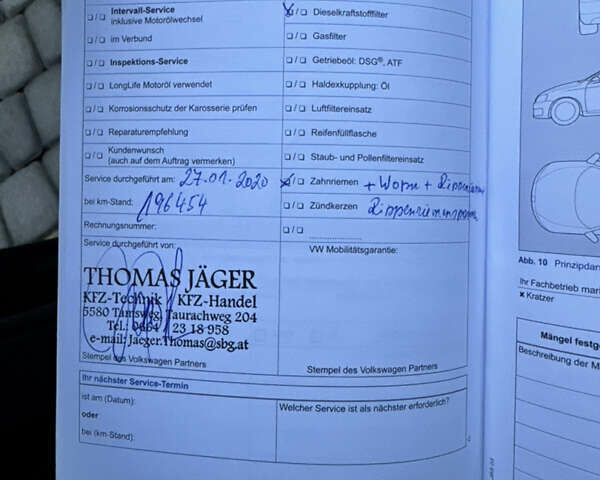 Intervall-Service
inklusive Motorölwechsel
Dieselkraftstofffilter
im Verbund
Gasfilter
Inspektions-Service
Getriebeöl: DSG®, ATF
LongLife Motoröl verwendet
Haldexkupplung: Öl
Korrosionsschutz der Karosserie prüfen
Luftfiltereinsatz
Reparaturempfehlung
Reifenfüllflasche
Kundenwunsch
(auch auf dem Auftrag vermerken)
Staub- und Pollenfiltereinsatz
Service durchgeführt am: 27.01.2020
Zahnriemen + Wapu +
bei km-Stand: 196454
Zündkerzen
Rechnungsnummer:
Service durchgeführt von:
VW Mobilitätsgarantie:
THOMAS JÄGER
KFZ-Technik / KFZ-Handel
5580 Tamsweg, Taurachweg 204
Tel.: 0664 / 23 18 958
e-mail: Jaeger.Thomas@sbg.at
Stempel des Volkswagen Partners
Stempel des Volkswagen Partners
Ihr nächster Service-Termin
ist am (Datum):
oder
bei (km-Stand):
Welcher Service ist als nächster erforderlich?
Abb. 10 Prinzipdar
Ihr Fachbetrieb mar
× Kratzer
Mängel festg
Beschreibung der M